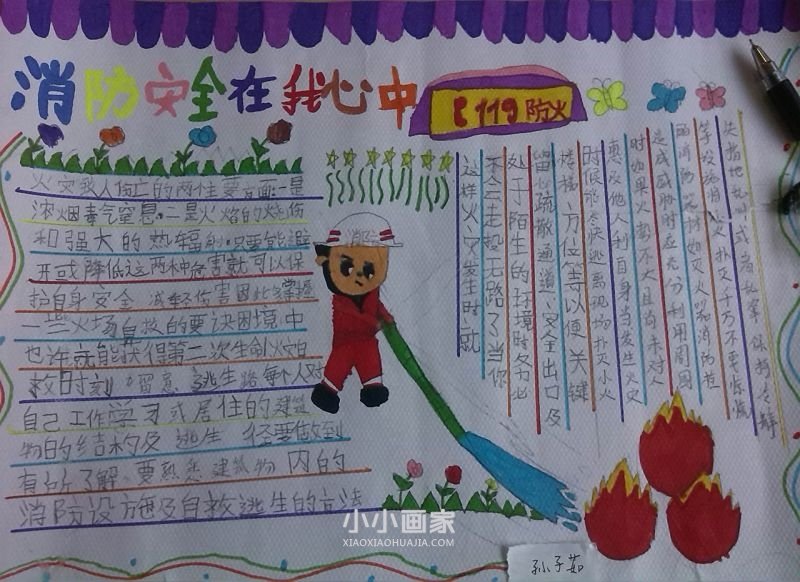 消防安全在我心中
119 防火
火灾致人伤亡的两个主要方面:一是
浓烟毒气窒息.二是火焰的烧伤
和强大的热辐射.只要能避
开或降低这两种危害就可以保
护自身安全.减轻伤害因此多掌握
一些火场自救的要诀困境中
也许就能获得第二次生命火灾自
救时刻留意逃生路每个人对
自己工作学习或居住的建筑
物的结构及逃生径要做到
有所了解.要熟悉建筑物内的
消防设施及自救逃生的方法
这样火灾发生时就
不会走投无路了当你
处于陌生的环境时务必
留心疏散通道、安全出口及
楼梯方位等以便关键
时候能尽快逃离现场扑灭小火
惠及他人利自身当发生火灾
时如果火势不大且尚未对人
造成威胁时应充分利用周围
的消防器材如灭火器消防栓
等设施将小火扑灭千万不要惊慌
失措地乱叫
消防
孙子茹
小小画家
XIAOXIAOHUAJIA.COM